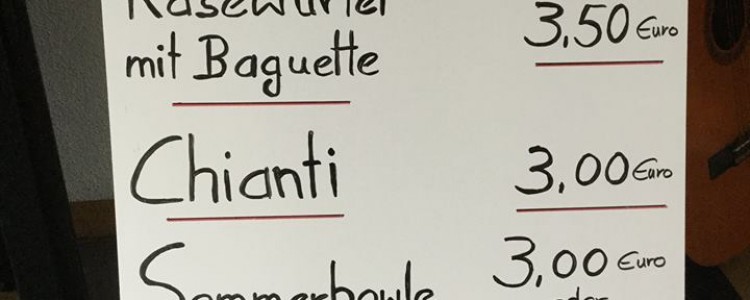 Käsewürfel 3,50 Euro
mit Baguette
Chianti 3,00 Euro
Sommerbowle 3,00 Euro
oder